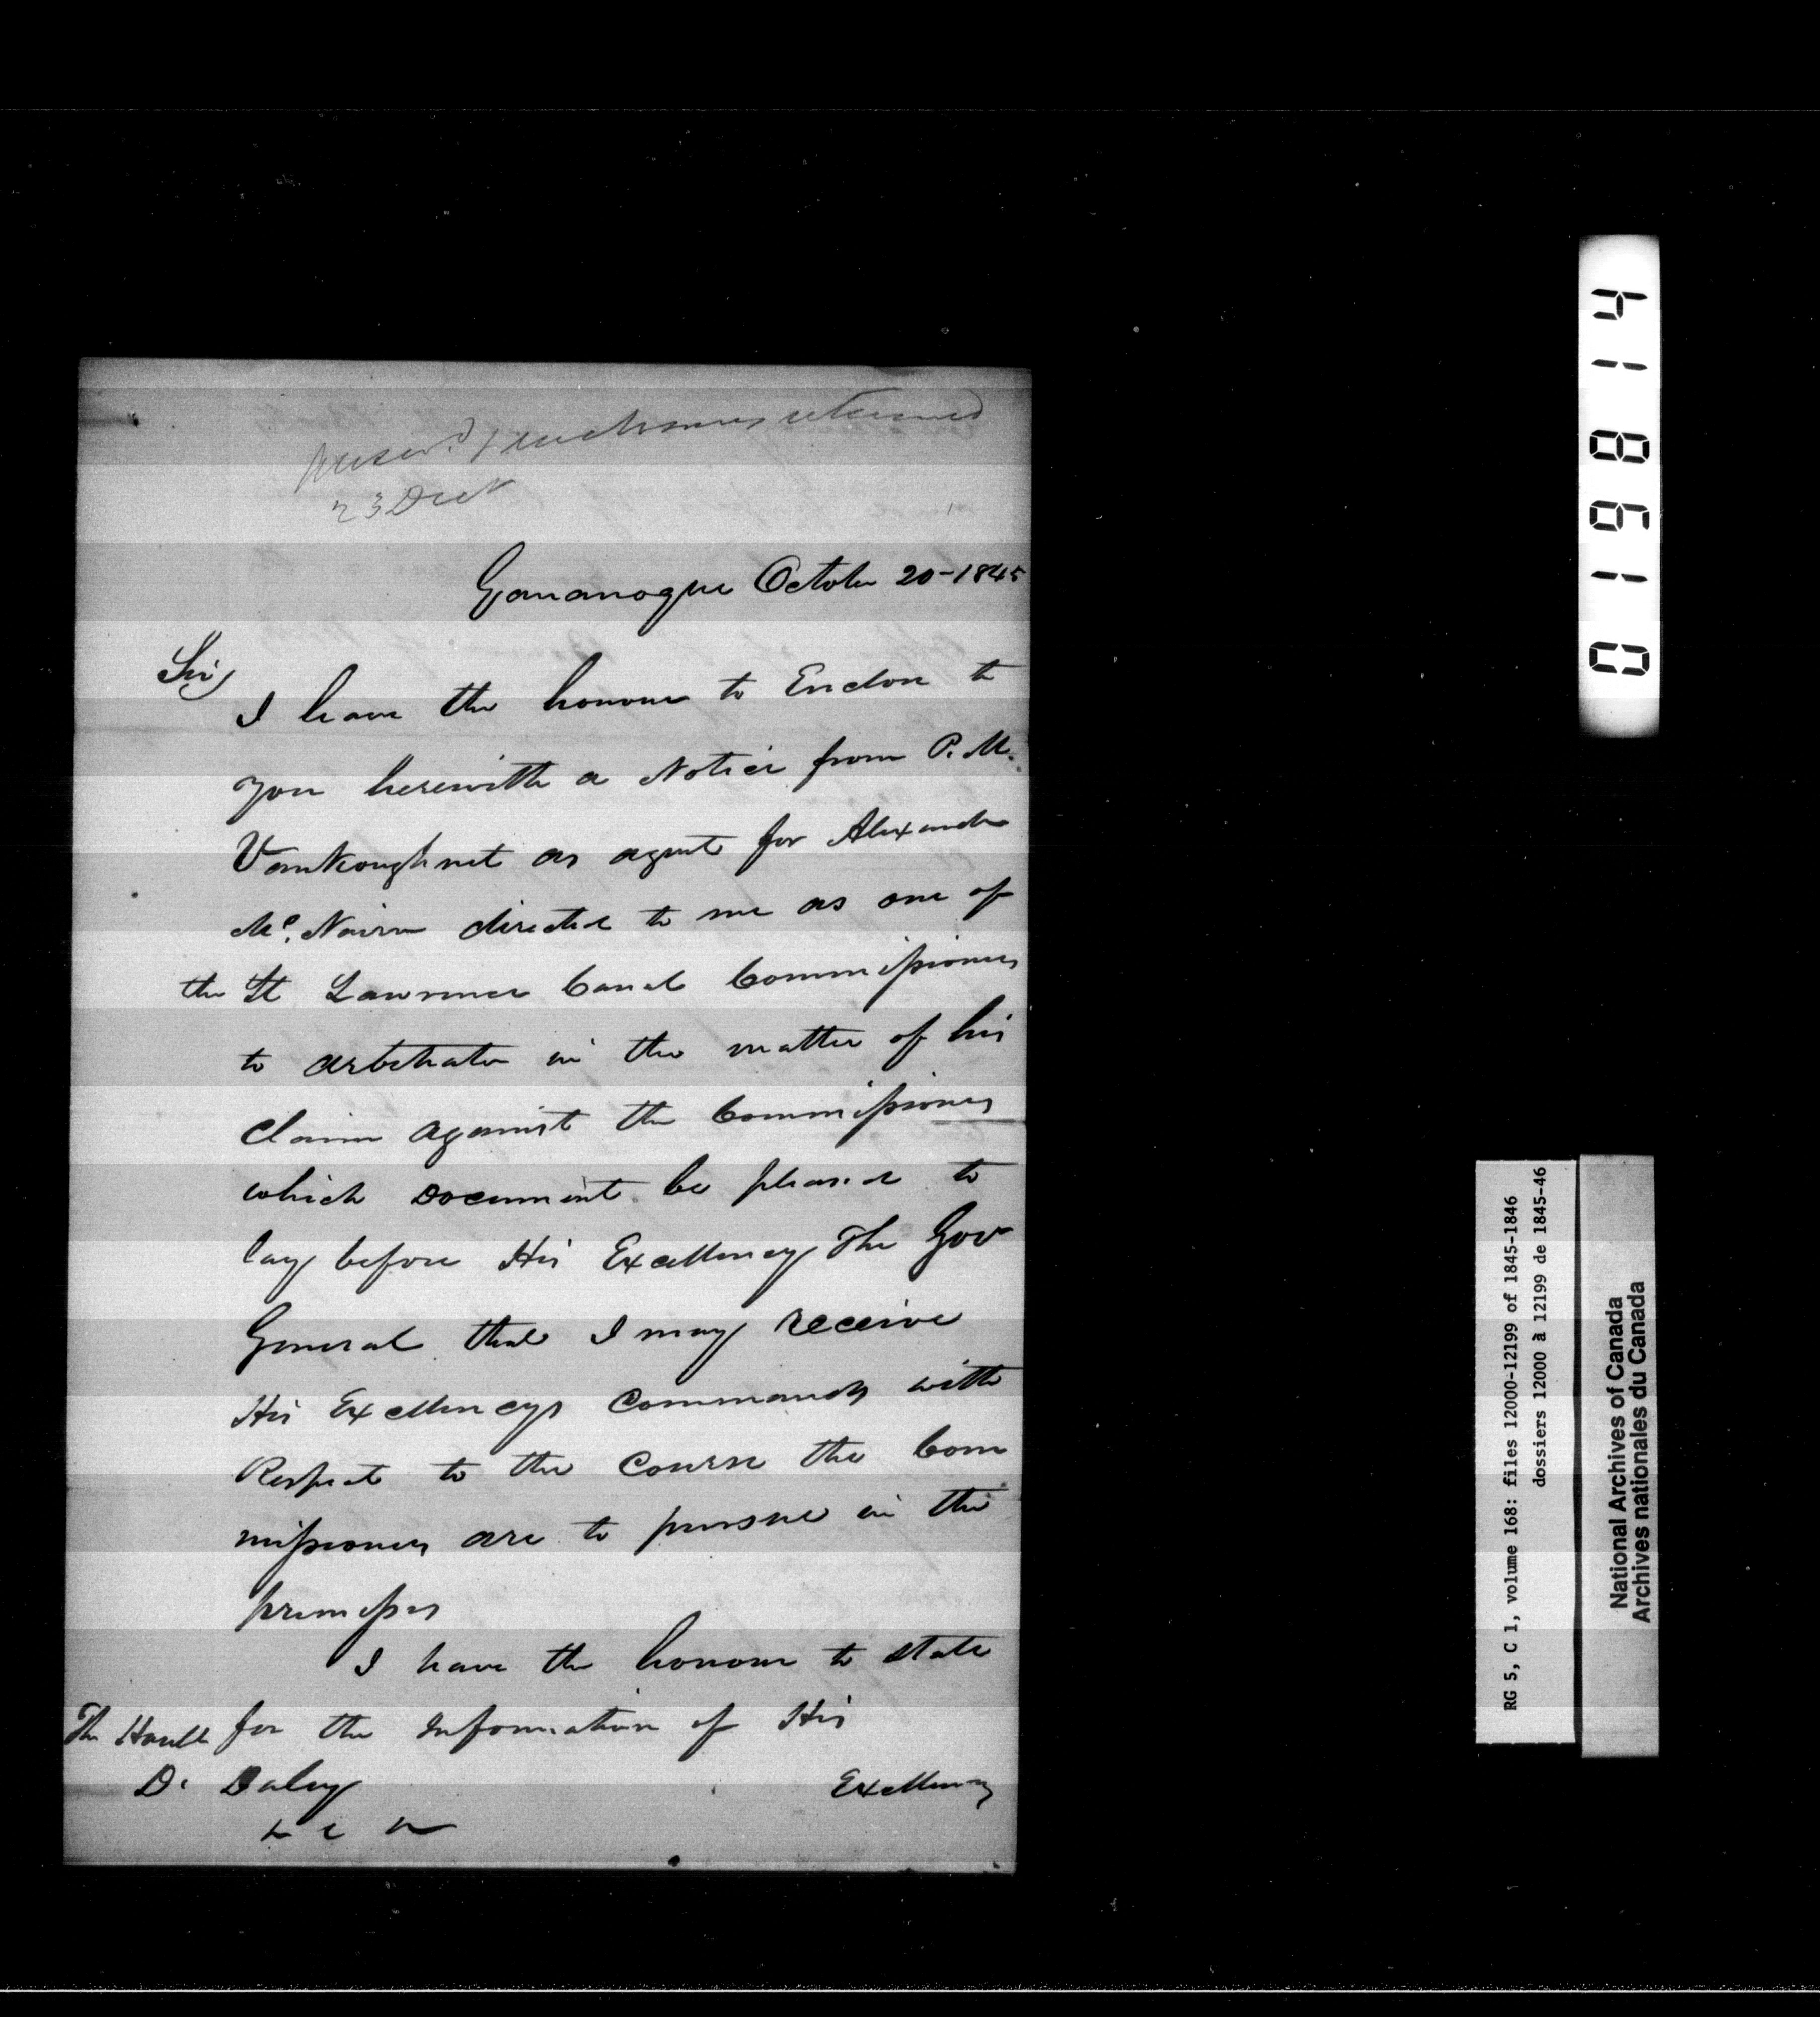 answd. & enclosures returned
23 Dect
Gananoque October 20-1845
Sir,
I have the honour to Enclose to
you herewith a Notice from P. M.
Vankoughnet as agent for Alexander
Mc. Nairn directed to me as one of
the St Lawrence Canal Commissioners
to arbitrate in the matter of his
Claim against the Commissioners
which Document be pleased to
lay before His Excellency The Gov
General that I may receive
His Excellencys Commands with
Respect to the Course the Com
missioners are to pursue in the
premises
I have the honour to state
for the Information of His
Excellency
The Honble
D. Daly
4 1 8 6 1 0
RG 5, C 1, volume 168: files 12000-12199 of 1845-1846
dossiers 12000 à 12199 de 1845-46
National Archives of Canada
Archives nationales du Canada